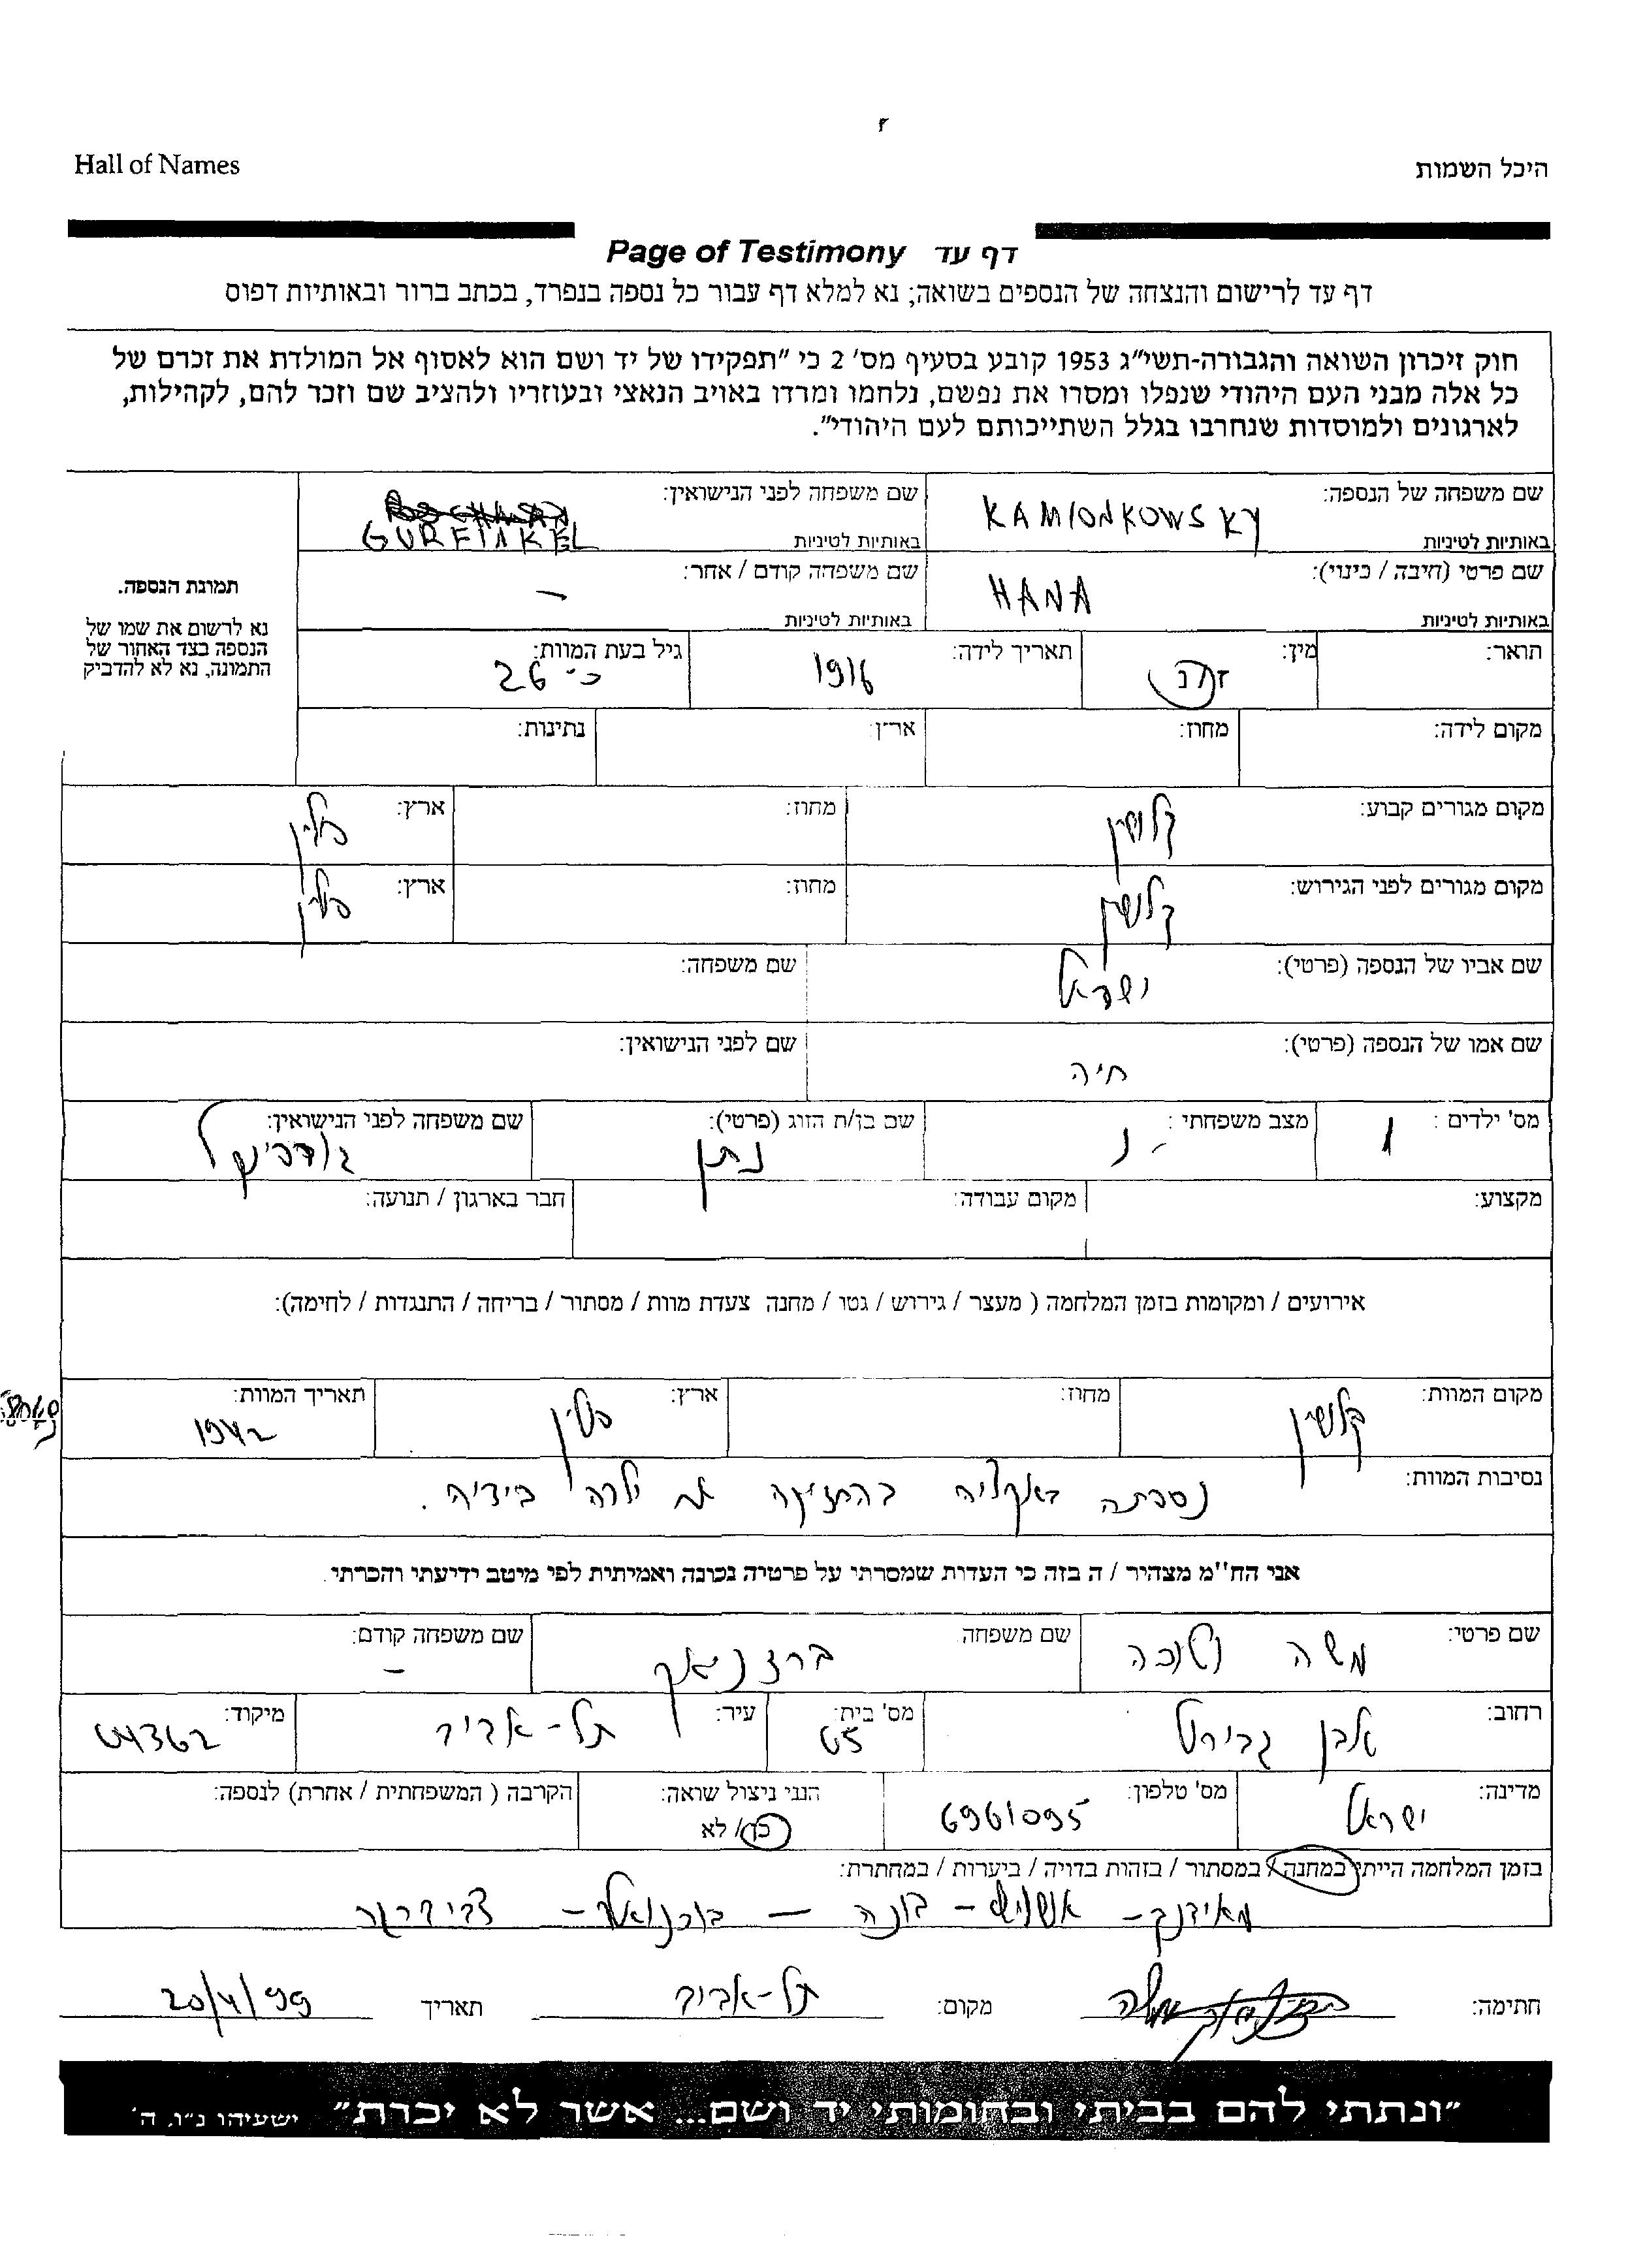 Hall of Names
היכל השמות
Page of Testimony דף עד
דף עד לרישום והנצחה של הנספים בשואה; נא למלא דף עבור כל נספה בנפרד, בכתב ברור ובאותיות דפוס
חוק זיכרון השואה והגבורה-תשי"ג 1953 קובע בסעיף מס' 2 כי "תפקידו של יד ושם הוא לאסוף אל המולדת את זכרם של
כל אלה מבני העם היהודי שנפלו ומסרו את נפשם, נלחמו ומרדו באויב הנאצי ובעוזריו ולהציב שם וזכר להם, לקהילות,
לארגונים ולמוסדות שנחרבו בגלל השתייכותם לעם היהודי".
שם משפחה של הנספה: שם משפחה לפני הנישואין:
KAMIONKOWSKY
באותיות לטיניות GURFINKEL באותיות לטיניות
שם פרטי (חיבה / כינוי): שם משפחה קודם / אחר:
HANA –
באותיות לטיניות באותיות לטיניות
תמונת הנספה.
נא לרשום את שמו של
הנספה בצד האחור של
התמונה, נא לא להדביק
תואר: מין: תאריך לידה: גיל בעת המוות:
ז/נ 1916 כ- 26
מקום לידה: מחוז: ארץ: נתינות:
מקום מגורים קבוע: מחוז: ארץ:
קלושין פולין
מקום מגורים לפני הגירוש: מחוז: ארץ:
קלושין פולין
שם אביו של הנספה (פרטי): שם משפחה:
ישראל
שם אמו של הנספה (פרטי): שם לפני הנישואין:
חיה
מס' ילדים: 1 מצב משפחתי: נ שם בן/ת הזוג (פרטי): שם משפחה לפני הנישואין:
נתן גורפינקל
מקצוע: מקום עבודה: חבר בארגון / תנועה:
אירועים / ומקומות בזמן המלחמה ( מעצר / גירוש / גטו / מחנה צעדת מוות / מסתור / בריחה / התנגדות / לחימה):
מקום המוות: מחוז: ארץ: תאריך המוות:
קלושין פולין 1942
נסיבות המוות:
נספתה באקציה בהחזיקה את ילדה בידיה.
אני הח"מ מצהיר / ה בזה כי העדות שמסרתי על פרטיה נכונה ואמיתית לפי מיטב ידיעתי והכרתי.
שם פרטי: שם משפחה שם משפחה קודם:
משה ברזניאק –
רחוב: מס' בית: עיר: מיקוד:
אבן גבירול 65 תל-אביב 64362
מדינה: מס' טלפון: הנני ניצול שואה: הקרבה ( המשפחתית / אחרת) לנספה:
ישראל 6961095 כן / לא
בזמן המלחמה הייתי במחנה / במסתור / בזהות בדויה / ביערות / במחתרת:
מאידנק - אושוויץ - בונה - בוכנוואלד -
חתימה: מקום: תל-אביב תאריך 20/4/99
"ונתתי להם בביתי ובחומותי יד ושם... אשר לא יכרת" ישעיהו נ"ו, ה'